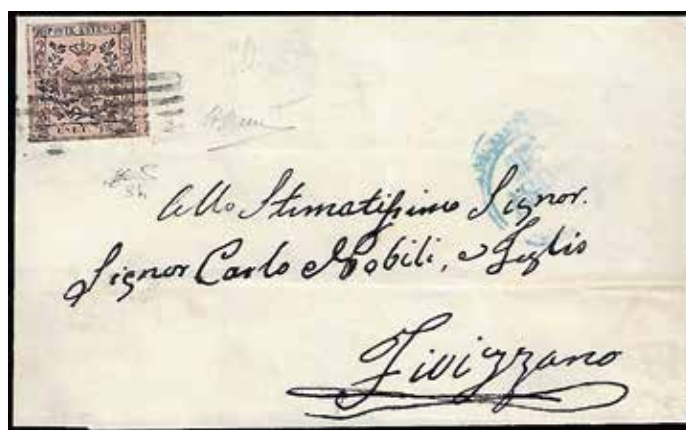 POSTE ESTENSI
Allo Stimatissimo Signor.
Signor Carlo Nobili, e Figlio
Fivizzano